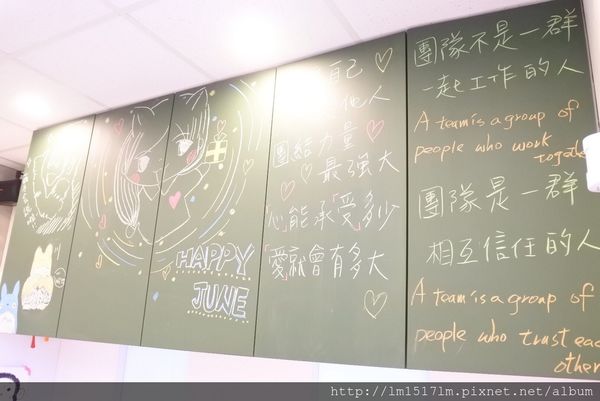 HAPPY
JUNE
自己
他人
團結力量
最強大
「心」能承「受」多少
「愛」就會有多大
團隊不是一群
一起工作的人
A team is a group of
people who work
together
團隊是一群
相互信任的人
A team is a group of
people who trust each
other
http://lm1517lm.pixnet.net/album